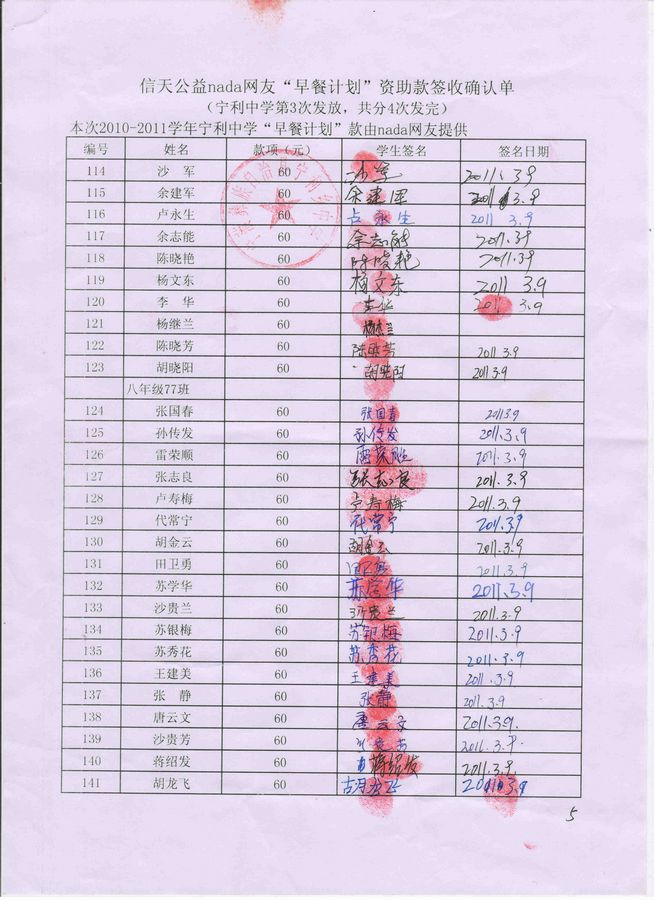 信天公益nada网友“早餐计划”资助款签收确认单
（宁利中学第3次发放，共分4次发完）
本次2010-2011学年宁利中学“早餐计划”款由nada网友提供
编号 姓名 款项（元） 学生签名 签名日期
114 沙 军 60 沙军 2011.3.9
115 余建军 60 余建军 2011.3.9
116 卢永生 60 卢永生 2011 3.9
117 余志能 60 余志能 2011.3.9
118 陈晓艳 60 陈晓艳 2011.3.9
119 杨文东 60 杨文东 2011 3.9
120 李 华 60 李华 2011.3.9
121 杨继兰 60
122 陈晓芳 60 陈晓芳 2011.3.9
123 胡晓阳 60 胡晓阳 2011.3.9
八年级77班
124 张国春 60 张国春 2011 3.9
125 孙传发 60 孙传发 2011.3.9
126 雷荣顺 60 2011.3.9
127 张志良 60 张志良 2011.3.9
128 卢寿梅 60 卢寿梅 2011.3.9
129 代常宁 60 代常宁 2011.3.9
130 胡金云 60 胡金云 2011.3.9
131 田卫勇 60 2011.3.9
132 苏学华 60 苏学华 2011.3.9
133 沙贵兰 60 沙贵兰 2011.3.9
134 苏银梅 60 苏银梅 2011.3.9
135 苏秀花 60 苏秀花 2011.3.9
136 王建美 60 王建美 2011.3.9
137 张 静 60 张静 2011.3.9
138 唐云文 60 唐云文 2011.3.9.
139 沙贵芳 60 2011.3.9.
140 蒋绍发 60 蒋绍发 2011.3.9
141 胡龙飞 60 胡龙飞 2011.3.9
5